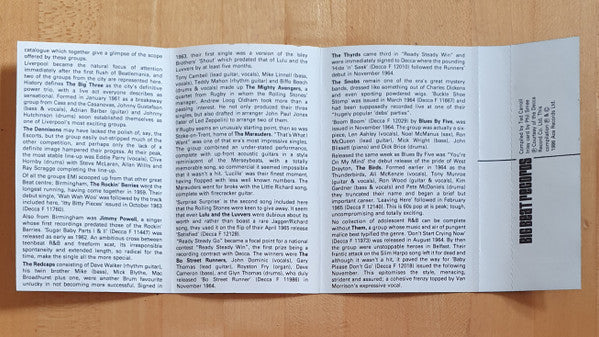 catalogue which together give a glimpse of the scope
offered by these groups.
Liverpool became the natural focus of attention
immediately after the first flush of Beatlemania, and
two of the groups from the city are represented here.
History defines The Big Three as the city's definitive
power trio, with a live act everyone describes as
sensational. Formed in January 1961 as a breakaway
group from Cass and the Casanovas, Johnny Gustafson
(bass & vocals), Adrian Barber (guitar) and Johnny
Hutchinson (drums) soon established themselves as
one of Liverpool's most exciting groups.
The Dennisons may have lacked the polish of, say, the
Escorts, but the group easily out-stripped much of the
other competition, and perhaps only the lack of a
definite image hampered their progress. At their peak,
the most stable line-up was Eddie Parry (vocals), Clive
Hornby (drums) with Steve McLaren, Alan Willis and
Ray Scraggs completing the line-up.
Of all the groups EMI scooped up from that other great
beat centre, Birmingham, The Rockin' Berries were the
longest running, having come together in 1959. Their
debut single, 'Wah Wah Woo' was followed by the track
included here, 'Itty Bitty Pieces' issued in October 1963
(Decca F 11760).
Also from Birmingham was Jimmy Powell, a singer
whose first recordings predated those of the Rockin'
Berries. 'Sugar Baby Parts I & II' (Decca F 11447) was
released as early as 1962. An ambitious cross between
teenbeat R&B and freeform scat, its irresponsible
spontaneity and extended length, so radical for the
time, make the single all the more special.
The Redcaps consisting of Dave Walker (rhythm guitar),
his twin brother Mike (bass), Mick Blythe, Mac
Broadhurst plus one, were another Brum group
unlucky in not becoming more successful. Signed in
1963, their first single was a version of the Isley
Brothers' 'Shout' which predated that of Lulu and the
Luvvers by at least five months.
Tony Cambell (lead guitar), Mike Linnell (bass,
vocals), Teddy Mahon (rhythm guitar) and Biffo Beech
(drums & vocals) made up The Mighty Avengers, a
quartet from Rugby in whom the Rolling Stones'
manager, Andrew Loog Oldham took more than a
passing interest. He not only produced their three
singles, but also drafted in arranger John Paul Jones
(later of Led Zeppelin) to arrange two of them.
If Rugby seems an unusually starting point, then so was
Stoke-on-Trent, home of The Marauders. 'That's What I
Want' was one of that era's most impressive singles.
The group contained an under-stated performance,
complete with up-front acoustic guitars in a style
reminiscent of the Merseybeats, with a totally
memorable song, so commercial it seemed impossible
that it wasn't a hit. 'Lucille' was their finest moment,
having flopped with less well known numbers. The
Marauders went for broke with the Little Richard song,
complete with firecracker guitar.
'Surprise Surprise' is the second song included here
that the Rolling Stones were keen to give away. It seem
that even Lulu and the Luvvers were dubious about its
worth and rather than boast a rare Jagger/Richard
song, they used it on the flip of their April 1965 release
'Satisfied' (Decca F 12128).
"Ready Steady Go" became a focal point for a national
contest "Ready Steady Win", the first prize being a
recording contract with Decca. The winners were The
Bo Street Runners, John Dominic (vocals), Gary
Thomas (lead guitar), Royston Fry (organ), Dave
Cameron (bass), and Glyn Thomas (drums), who duly
released 'Bo Street Runner' (Decca F 11986) in
November 1964.
The Thyrds came third in "Ready Steady Win" and
were immediately signed to Decca where the pounding
'Hide 'n' Seek' (Decca F 12010) followed the Runners'
debut in November 1964.
The Snobs remain one of the era's great mystery
bands, dressed like something out of Charles Dickens
and even sporting powdered wigs. 'Buckle Shoe
Stomp' was issued in March 1964 (Decca F 11867) and
had been supposedly recorded live at one of their
"hugely popular 'debs' parties".
'Boom Boom' (Decca F 12029) by Blues By Five, was
issued in November 1964. The group was actually a six-
piece, Len Ashley (vocals), Noel McManus (bass), Ron
McQueen (lead guitar), Mick Knight (bass), John
Blissett (drums) and Dick Brice (drums).
Released the same week as Blues By Five was "You're
On My Mind' the debut release of the pride of West
Drayton, The Birds. Formed earlier in 1964 as the
Thunderbirds, Ali McKenzie (vocals), Tony Munroe
(guitar & vocals), Ron Wood (guitar & vocals), Kim
Gardner (bass & vocals) and Pete McDaniels (drums)
they truncated their name and began a brief but
important career. 'Leaving Here' followed in February
1965 (Decca F 12140). This is 60s pop at is peak; tough,
uncompromising and totally exciting.
No collection of adolescent R&B can be complete
without Them, a group whose music and air of pungent
malice best typified the genre. 'Don't Start Crying Now'
(Decca F 11973) was released in August 1964. By then
the group were unstoppable heroes in Belfast. Their
frantic attack on the Slim Harpo song left it for dead and
although it wasn't a hit, it paved the way for 'Baby
Please Don't Go' (Decca F 12018) issued the following
November. This epitomises the style, menacing,
strident and assured; a cohesive frenzy topped by Van
Morrison's expressive vocal.
BIG BEAT RECORDS